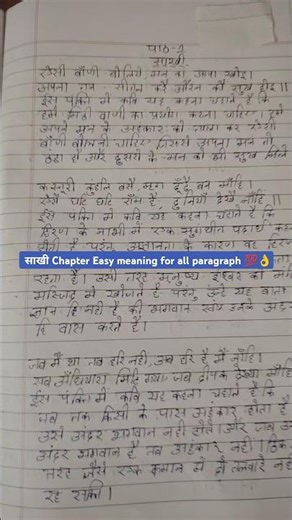 पाठ-1
साखी
ऐसी बाँणी बोलिये, मन का आपा खोइ।
अपना तन सीतल करै औरन कौं सुख होइ।।
इस पंक्ति में कवि यह कहना चाहते हैं कि
हमें मिठी वाणी का प्रयोग करना चाहिए। हमें
अपने मन के अहंकार को त्याग कर ऐसी
वाणी बोलनी चाहिए जिससे अपना मन तो
ठंढा हो और दुसरों के मन को भी सुख मिले
कस्तूरी कुंडलि बसै, मृग ढूँढै बन माँहि।
ऐसैं घटि घटि राँम है, दुनियाँ देखै नाँहिं।।
इस पंक्ति में कवि यह कहना चाहते हैं कि
हिरण के नाभी में एक सुगंधीत पदार्थ कस्तु
होती है परंतु अज्ञानता के कारण वह हिरण
साखी Chapter Easy meaning for all paragraph 💯👌
रहता है। उसी तरह मनुष्य ईश्वर को
मस्जिद में खोजते हैं परंतु उन्हें यह बात
ज्ञान ही नहीं है की भगवान स्वयं उनके अंदर
ही वास करते हैं।
जब मैं था तब हरि नहीं, अब हरि हैं मैं नाँहि।
सब अँधियारा मिटि गया, जब दीपक देख्या माँहि
इस पंक्ति में कवि यह कहना चाहते हैं कि
जब तक किसी के पास अहंकार होता है
उसके अंदर भगवान नहीं होते। और जब उनके
अंदर भगवान है तब अहंकार नहीं। ठिक
तरह जैसे एक कमान में दो तलवारें नहीं
रह सकती।